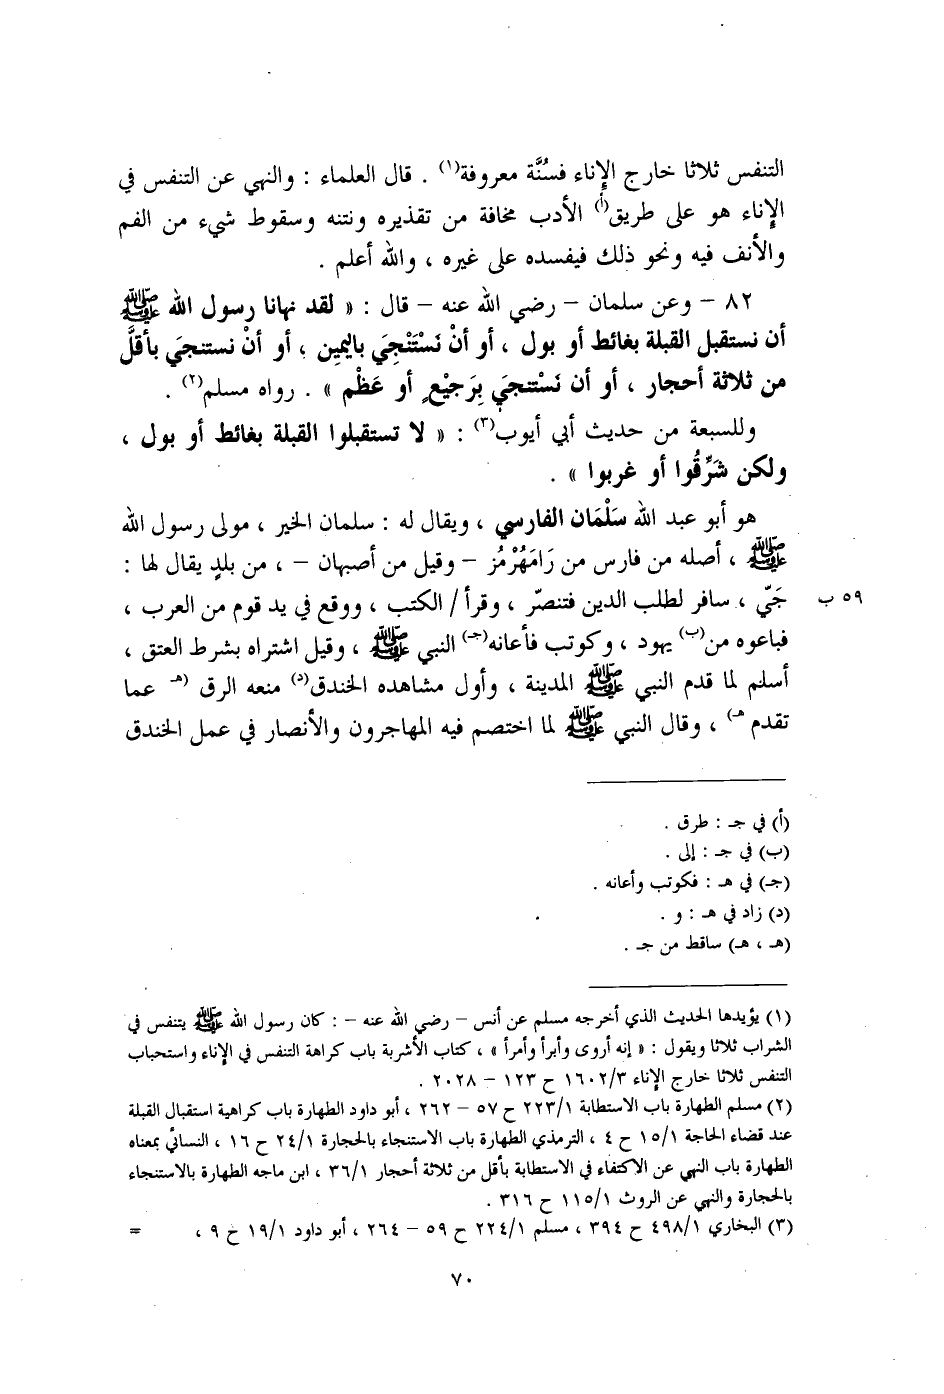 التنفس ثلاثا خارج الإناء فسُنَّة معروفة(١) . قال العلماء : والنهي عن التنفس في
الإناء هو على طريق(أ) الأدب مخافة من تقذيره ونتنه وسقوط شيء من الفم
والأنف فيه ونحو ذلك فيفسده على غيره ، والله أعلم .
٨٢ – وعن سلمان – رضي الله عنه – قال : « لقد نهانا رسول الله ﷺ
أن نستقبل القبلة بغائط أو بول ، أو أنْ نَسْتَنْجِيَ باليَمِين ، أو أنْ نستنجيَ بأقلَّ
من ثلاثة أحجار ، أو أن نَسْتنجيَ بِرَجيْعٍ أو عَظْم » . رواه مسلم(٢) .
وللسبعة من حديث أبي أيوب(٣) : « لا تستقبلوا القبلة بغائط أو بول ،
ولكن شَرِّقُوا أو غربوا » .
هو أبو عبد الله سَلْمَان الفارسي ، ويقال له : سلمان الخير ، مولى رسول الله
ﷺ ، أصله من فارس من رَامَهُرْمُز – وقيل من أصبهان – ، من بلدٍ يقال لها :
جَيّ ، سافر لطلب الدين فتنصّر ، وقرأ / الكتب ، ووقع في يد قوم من العرب ، ٥٩ ب
فباعوه من(ب) يهود ، وكوتب فأعانه(جـ) النبي ﷺ ، وقيل اشتراه بشرط العتق ،
أسلم لما قدم النبي ﷺ المدينة ، وأول مشاهده الخندق(د) منعه الرق (هـ عما
تقدم هـ) ، وقال النبي ﷺ لما اختصم فيه المهاجرون والأنصار في عمل الخندق
(أ) في جـ : طرق .
(ب) في جـ : إلى .
(جـ) في هـ : فكوتب وأعانه .
(د) زاد في هـ : و .
(هـ ، هـ) ساقط من جـ .
(١) يؤيدها الحديث الذي أخرجه مسلم عن أنس – رضي الله عنه – : كان رسول الله ﷺ يتنفس في
الشراب ثلاثا ويقول : « إنه أروى وأبرأ وأمرأ » ، كتاب الأشربة باب كراهة التنفس في الإناء واستحباب
التنفس ثلاثا خارج الإناء ١٦٠٢/٣ ح ١٢٣ – ٢٠٢٨ .
(٢) مسلم الطهارة باب الاستطابة ٢٢٣/١ ح ٥٧ – ٢٦٢ ، أبو داود الطهارة باب كراهية استقبال القبلة
عند قضاء الحاجة ١٥/١ ح ٤ ، الترمذي الطهارة باب الاستنجاء بالحجارة ٢٤/١ ح ١٦ ، النسائي بمعناه
الطهارة باب النهي عن الاكتفاء في الاستطابة بأقل من ثلاثة أحجار ٣٦/١ ، ابن ماجه الطهارة بالاستنجاء
بالحجارة والنهي عن الروث ١١٥/١ ح ٣١٦ .
(٣) البخاري ٤٩٨/١ ح ٣٩٤ ، مسلم ٢٢٤/١ ح ٥٩ – ٢٦٤ ، أبو داود ١٩/١ ح ٩ ، =
٧٠